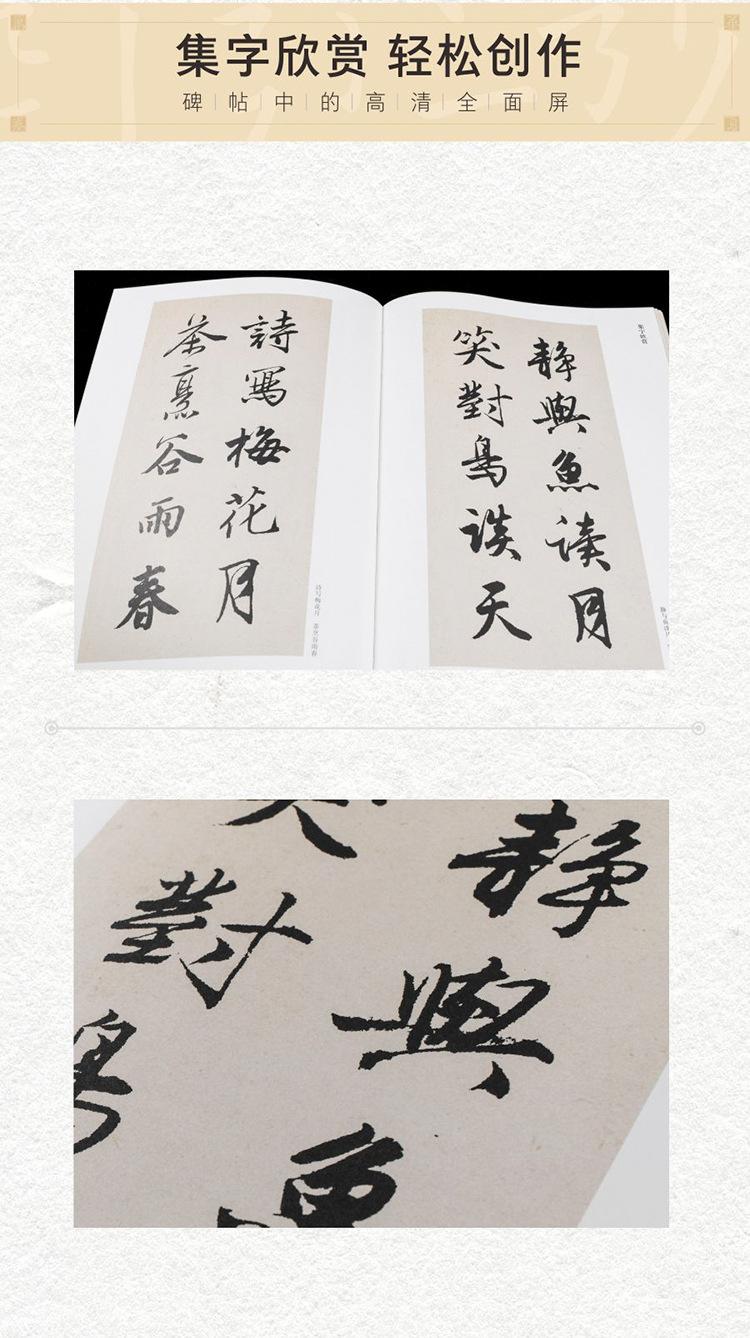 集字欣赏 轻松创作
碑帖中的高清全面屏
集字欣赏
静與魚讀月
笑對鳥談天
詩寫梅花月
茶烹谷雨春
诗写梅花月 茶烹谷雨春
静與魚
笑對鳥